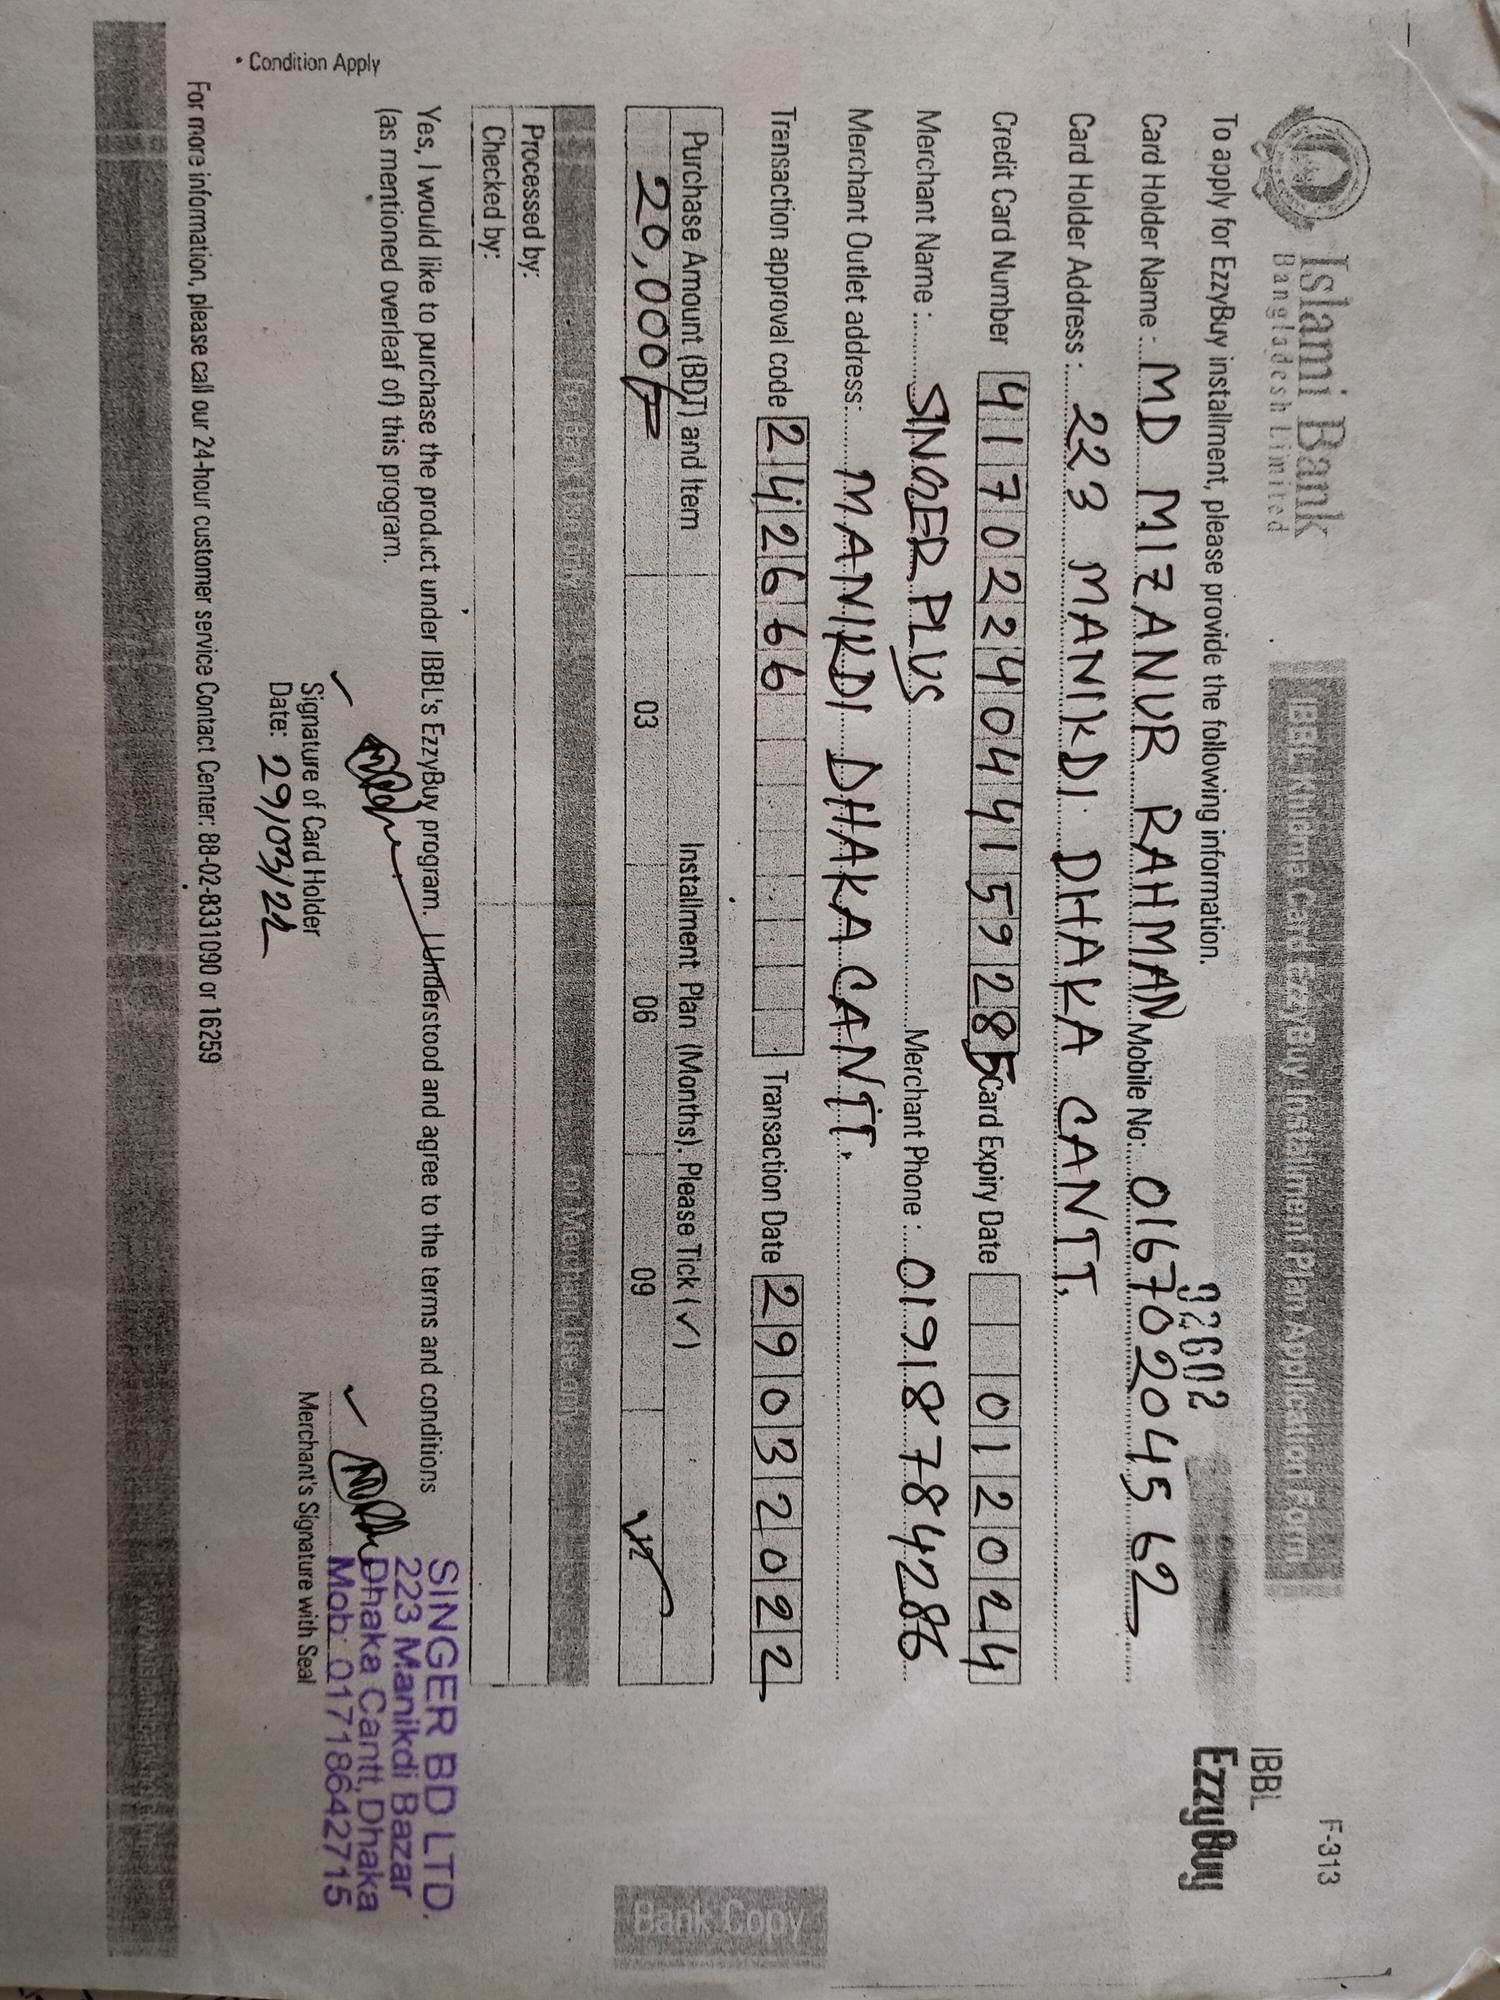 F-313
Islami Bank
Bangladesh Limited
IBBL Khidma Card EzzyBuy Installment Plan Application Form
IBBL
EzzyBuy
02602
To apply for EzzyBuy installment, please provide the following information.
Card Holder Name : MD MIZANUR RAHMAN Mobile No: 01670204562
Card Holder Address : 223 MANIKDI DHAKA CANTT,
Credit Card Number 4170224044159285 Card Expiry Date 012024
Merchant Name : SINGER PLUS Merchant Phone : 01918784286
Merchant Outlet address: MANIKDI DHAKA CANTT,
Transaction approval code 242666 Transaction Date 29032022
Purchase Amount (BDT) and Item Installment Plan (Months). Please Tick (✓)
20,000/= 03 06 09 12
For Merchant Use only
Processed by:
Checked by:
Yes, I would like to purchase the product under IBBL's EzzyBuy program. Understood and agree to the terms and conditions
(as mentioned overleaf of) this program.
Signature of Card Holder
Date: 29/03/22
SINGER BD LTD.
223 Manikdi Bazar
Dhaka Cantt, Dhaka
Mob: 01718642715
Merchant's Signature with Seal
• Condition Apply
For more information, please call our 24-hour customer service Contact Center: 88-02-8331090 or 16259
Bank Copy